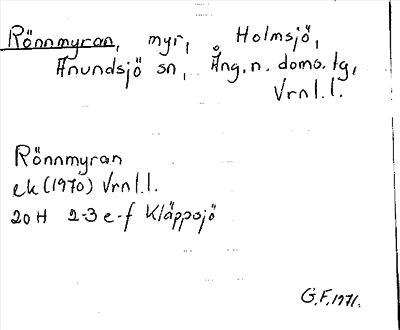 Rönnmyran, myr, Holmsjö,
Anundsjö sn, Ång. n. doms. tg,
Vrnl.l.
Rönnmyran
ek (1970) Vrnl.l.
20H 2-3 e-f Kläppsjö
G.F. 1971.